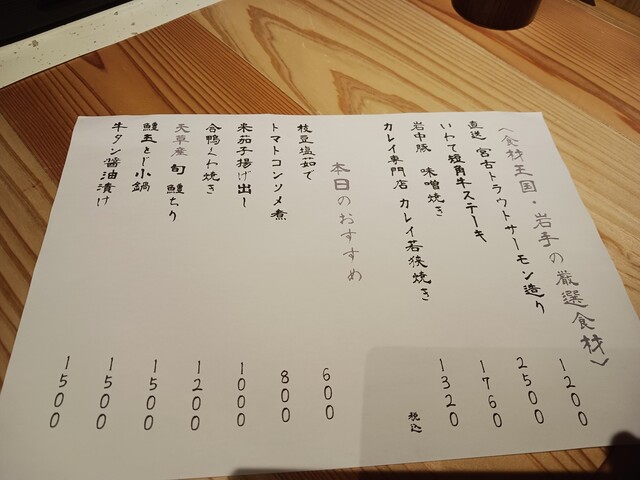 〈食材王国・岩手の厳選食材〉
直送 宮古トラウトサーモン造り 1200
いわて短角牛ステーキ 2500
岩中豚 味噌焼き 1760
カレイ専門店 カレイ若狭焼き 1320
税込
本日のおすすめ
枝豆塩茹で 600
トマトコンソメ煮 800
米茄子揚げ出し 1000
合鴨くわ焼き 1200
天草産 旬 鱧ちり 1500
鱧玉とじ小鍋 1500
牛タン醤油漬け 1500